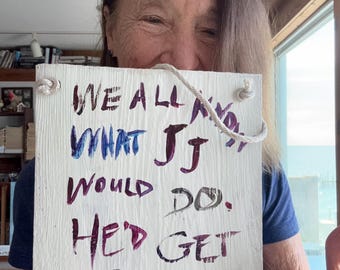 WE ALL KNOW
WHAT JJ
WOULD DO.
HE'D GET